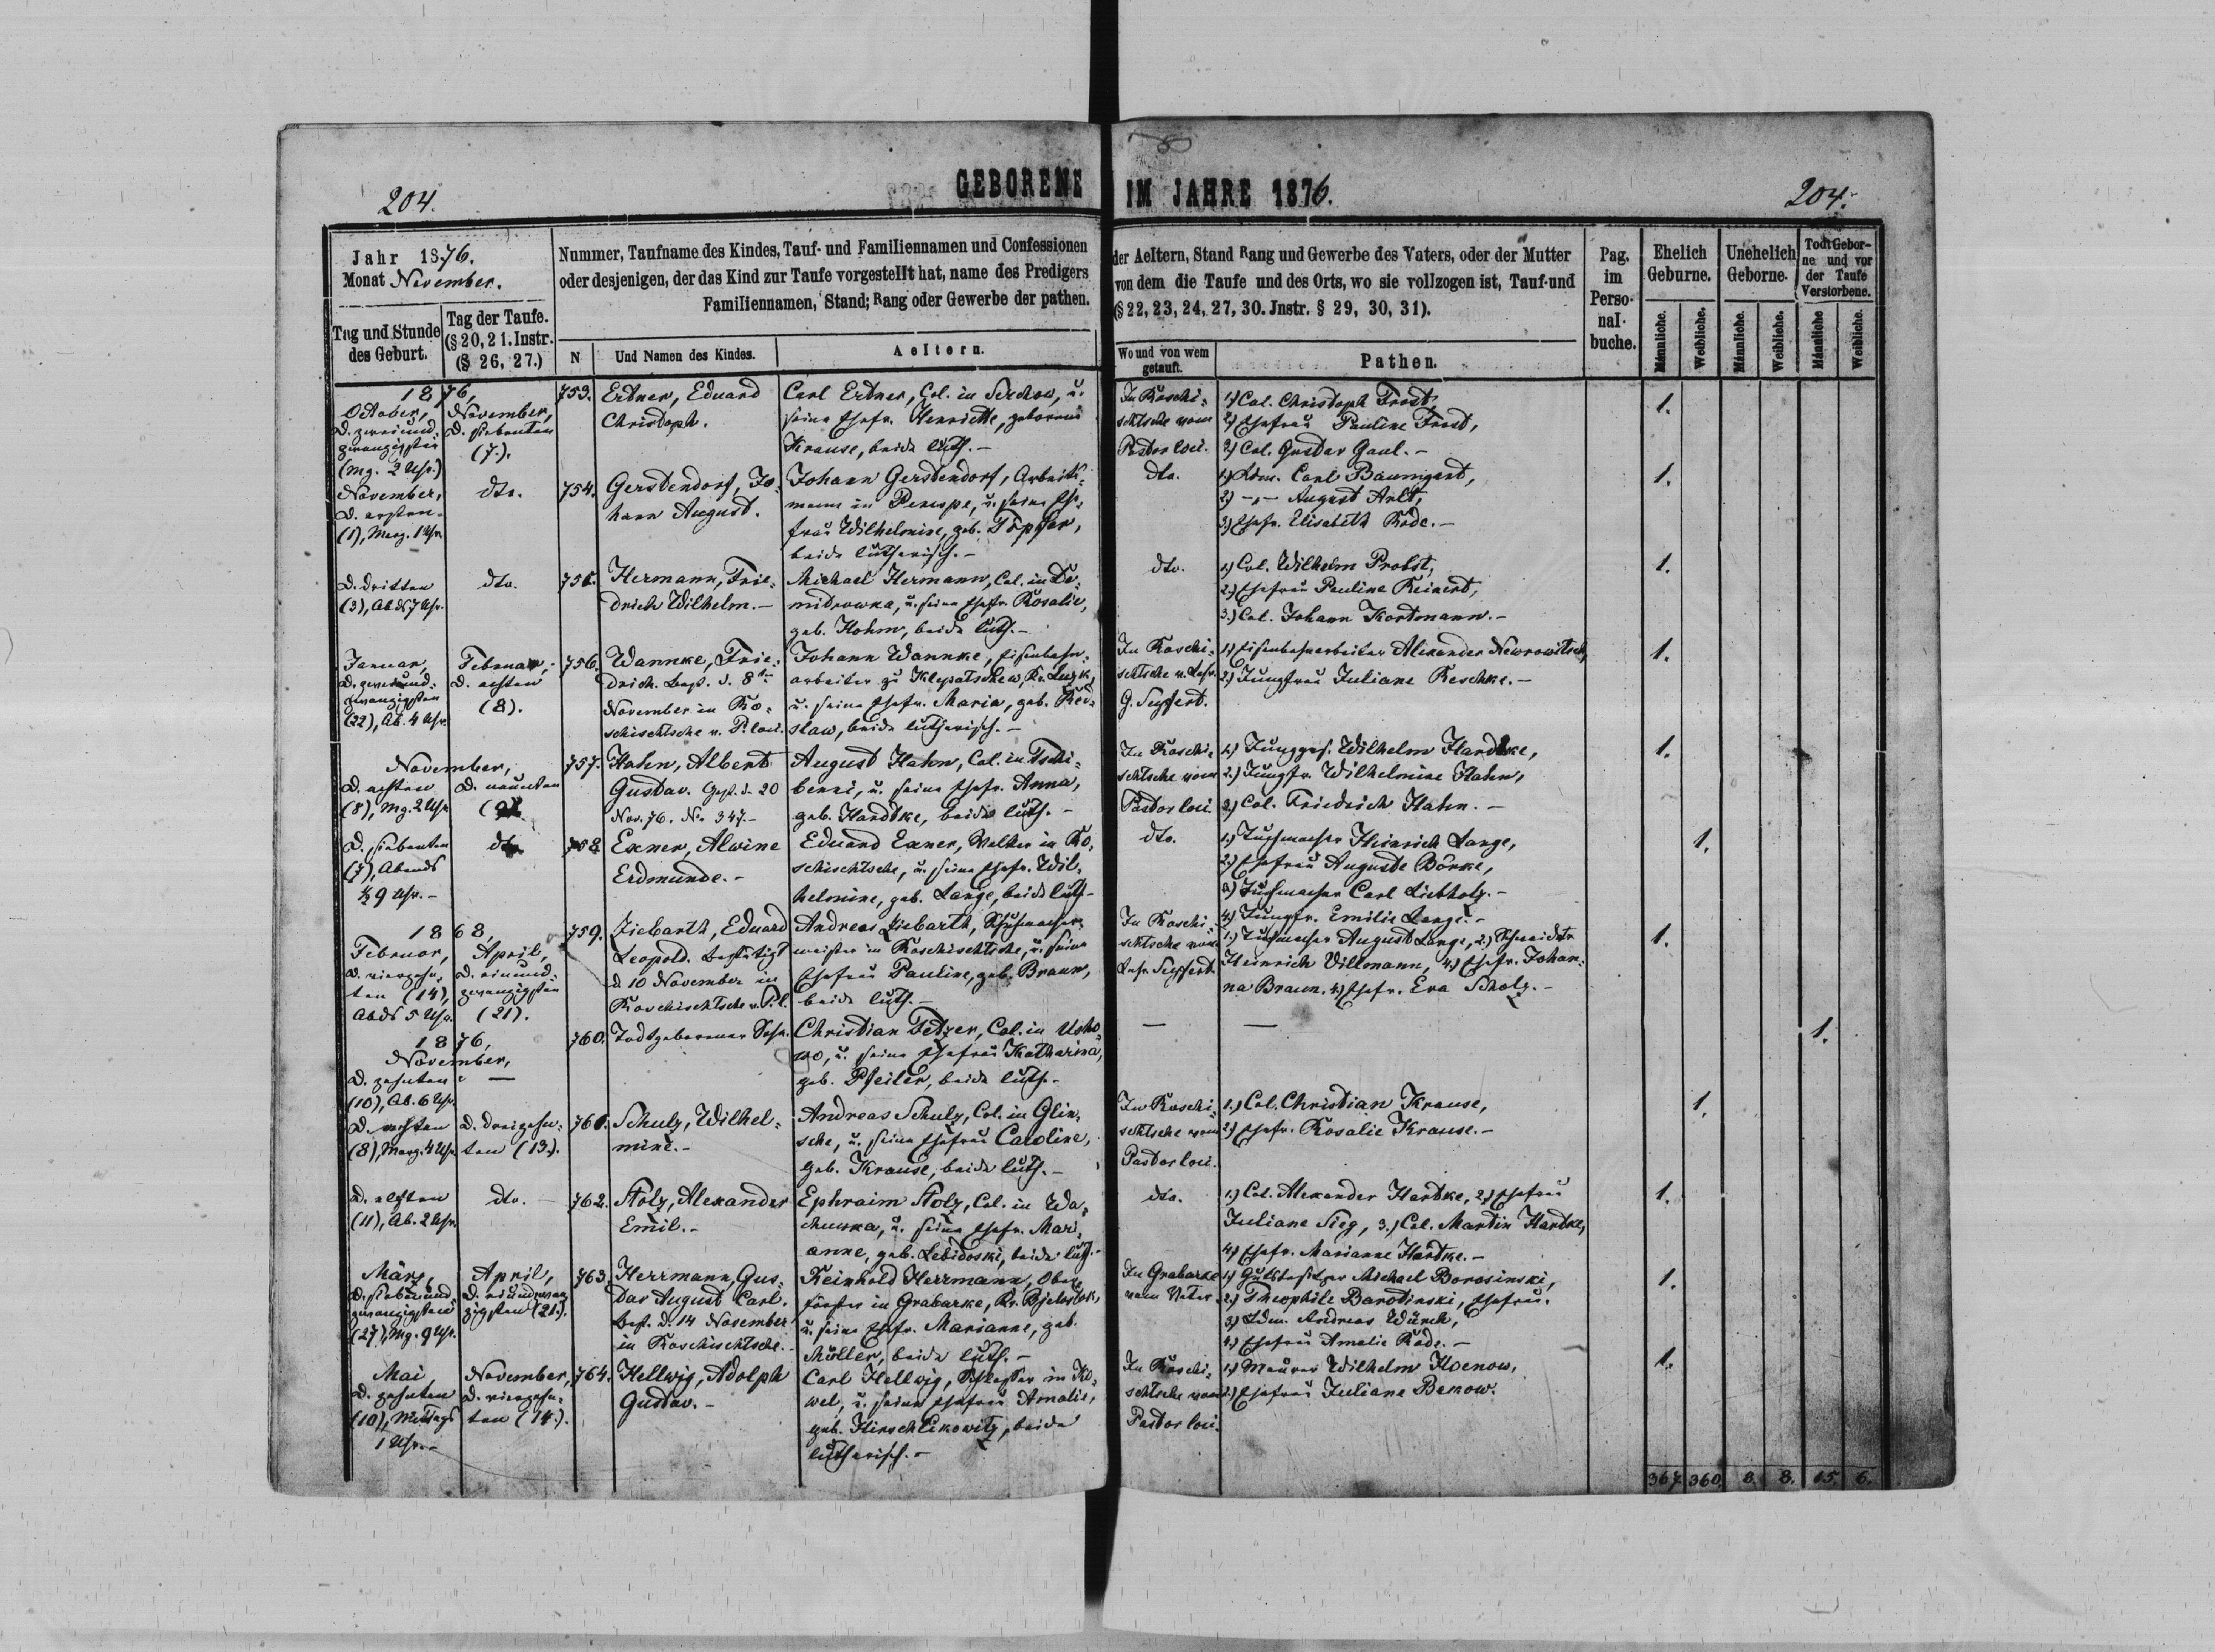 204.
GEBORENE IM JAHRE 1876.
204.
Jahr 1876.
Monat November.
Tag und Stunde des Geburt.
Tag der Taufe. (§ 20, 21. Instr. (§ 26, 27.)
Nummer, Taufname des Kindes, Tauf- und Familiennamen und Confessionen der Aeltern, Stand Rang und Gewerbe des Vaters, oder der Mutter
oder desjenigen, der das Kind zur Taufe vorgestellt hat, name des Predigers von dem die Taufe und des Orts, wo sie vollzogen ist, Tauf-und
Familiennamen, Stand; Rang oder Gewerbe der pathen. (§ 22, 23, 24, 27, 30. Jnstr. § 29, 30, 31).
N
Und Namen des Kindes.
Aeltern.
Wo und von wem getauft.
Pathen.
Pag. im Perso- nal- buche.
Ehelich Geburne.
Unehelich Geborne.
Todt Gebor- ne und vor der Taufe Verstorbene.
Männliche. Weibliche. Männliche. Weibliche. Männliche Weibliche.
1876,
October, D. zweiund-
zwanzigsten
(Mg. 2 Uhr.)
November,
D. siebenten
(7.).
753.
Erdner, Eduard
Christoph.
Carl Erdner, Col. in Serchow, u.
seine Ehefr. Henriette, geborene
Krause, beide luth. –
In Roschi-
schtsche vom
Pastor loci.
1.) Col. Christoph Frost,
2) Ehefrau Pauline Frost,
2) Col. Gustav Gaul. –
1.
November,
D. ersten
(1), Morg. 1 Uhr.
dto.
754.
Gerstendorf, Jo-
hann August.
Johann Gerstendorf, Arbeits-
mann in Perespe, u. seine Ehe-
frau Wilhelmine, geb. Töpfer,
beide lutherisch. –
dto.
1.) Carl Baumgart,
2) –,– August Arlt,
3) Ehefr. Elisabeth Rode. –
1.
D. dritten
(3), Abds 7 Uhr.
dto.
755.
Hermann, Frie-
drich Wilhelm. –
Michael Hermann, Col. in De-
midrowka, u. seine Ehefr. Rosalie,
geb. Hohm, beide luth. –
dto.
1.) Col. Wilhelm Probst,
2.) Ehefrau Pauline Reinert,
3.) Col. Johann Kordmann. –
1.
Januar,
D. zweiund-
zwanzigsten
(22), Ab. 4 Uhr.
Februar,
D. achten
(8).
756.
Wannke, Frie-
drich. Best. d. 8ten
November in Ro-
schischtsche v. P. loci.
Johann Wannke, Eisenbahn-
arbeiter zu Klepatschew, Kr. Luzk,
u. seine Ehefr. Maria, geb. Red-
slaw, beide lutherisch. –
In Roschi-
schtsche v. Lehr.
G. Seyfert.
1.) Eisenbahnarbeiter Alexander Newrowitsch,
2.) Jungfrau Juliane Reschke. –
1.
November,
D. achten
(8), Mg. 2 Uhr
D. neunten
(9).
757.
Hahn, Albert
Gustav. Gest. d. 20
Nov. 76. No. 347. –
August Hahn, Col. in Tschi-
benni, u. seine Ehefr. Anna,
geb. Hardtke, beide luth. –
In Roschi-
schtsche vom
Pastor loci.
1.) Junggef. Wilhelm Hardtke,
2.) Jungfr. Wilhelmine Hahn,
3) Col. Friedrich Hahn. –
1.
D. siebenten
(7), Abends
½ 9 Uhr. –
dto.
758.
Exner, Alwine
Erdmunde. –
Eduard Exner, Walker in Ro-
schischtsche, u. seine Ehefr. Wil-
helmine, geb. Lange, beide luth –
dto.
1.) Tuchmacher Heinrich Lange,
2.) Ehefrau Auguste Börke,
3) Tuchmacher Carl Liebholz. –
4) Jungfr. Emilie Lange. –
1.
1868,
Februar,
D. vierzehn-
ten (14),
Abds 5 Uhr.
April,
D. einund-
zwanzigsten
(21).
759.
Ziebarth, Eduard
Leopold. Bestätigt
d 10 November in
Roschischtsche v. P. l.
Andreas Ziebarth, Schuhmacher-
meister in Roschischtsche, u. seine
Ehefrau Pauline, geb. Braun,
beide luth. –
In Roschi-
schtsche vom
Lehr. Seyfert.
1.) Tuchmacher August Lange, 2.) Schneider
Heinrich Villmann, 4.) Ehefr. Johan-
na Braun. 4.) Ehefr. Eva Scholz. –
1.
1876,
November,
D. zehnten
(10), Ab. 6 Uhr.
–
760.
Todtgeborener Sohn.
Christian Fetzer, Col. in Usho-
wo, u. seine Ehefrau Katharina,
geb. Pfeiler, beide luth. –
– –
1.
D. achten
(8), Morg. 4 Uhr
D. dreizehn-
ten (13.).
761.
Schulz, Wilhel-
mine. –
Andreas Schulz, Col. in Glin-
sche, u. seine Ehefrau Caroline,
geb. Krause, beide luth. –
In Roschi-
schtsche vom
Pastor loci.
1.) Col. Christian Krause,
2.) Ehefr. Rosalie Krause. –
1.
D. elften
(11), Ab. 2 Uhr.
dto. –
762.
Stolz, Alexander
Emil. –
Ephraim Stolz, Col. in Wa-
u. seine Ehefr. Mari-
anne, geb. Lebidoski, beide luth. –
dto.
1.) Col. Alexander Hartke, 2.) Ehefrau
Juliane Sieg, 3.) Col. Martin Hartke,
4.) Ehefr. Marianne Hartke. –
1.
März,
D. siebenund-
zwanzigsten
(27), Mg. 9 Uhr.
April,
D. einundzwan-
zigsten (21.).
763.
Herrmann, Gus-
tav August Carl.
Best. d. 14 November
in Roschischtsche. –
Reinhold Herrmann, Ober-
förster in Grabarke, Kr. Bjelostok,
u. seine Ehefr. Marianne, geb.
Müller, beide luth. –
In Grabarke
vom Vater.
1.) Gutsbesitzer Michael Borosinski,
2.) Theophile Barotinski, Ehefrau.
3) Andreas Würch,
4.) Ehefrau Amalie Rode. –
1.
Mai,
D. zehnten
(10), Mittags
1 Uhr. –
November,
D. vierzehn-
ten (14.).
764.
Hellwig, Adolph
Gustav. –
Carl Hellwig, Schlosser in Ko-
wel, u. seine Ehefrau Amalie,
geb. Hirschlikowitz, beide
lutherisch. –
In Roschi-
schtsche vom
Pastor loci.
1.) Maurer Wilhelm Hoenow,
2.) Ehefrau Juliane Bekow.
1.
367. 360. 8. 8. 15. 6.